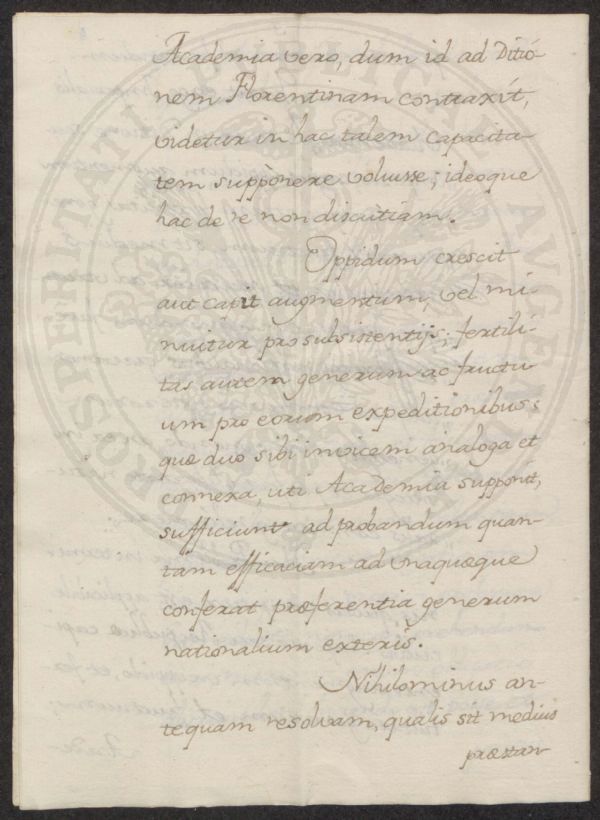 Academia vero, dum id ad Ditio-
nem Florentinam contraxit,
videtur in hac talem capacita-
tem supponere voluisse; ideoque
hac de re non discutiam.
Oppidum crescit
aut capit augmentum, vel mi-
nuitur pro subsistentijs; fertili-
tas autem generum ac fructu
um pro eorum expeditionibus:
quæ duo sibi invicem analoga et
connexa, uti Academia supponit,
sufficiunt ad probandum quan-
tam efficaciam ad unaquæque
conferat præferentia generum
nationalium exteris.
Nihilominus an-
tequam resolvam, qualis sit medius
præstan-
PROSPERITATI PUBLICAE AUGENDAE